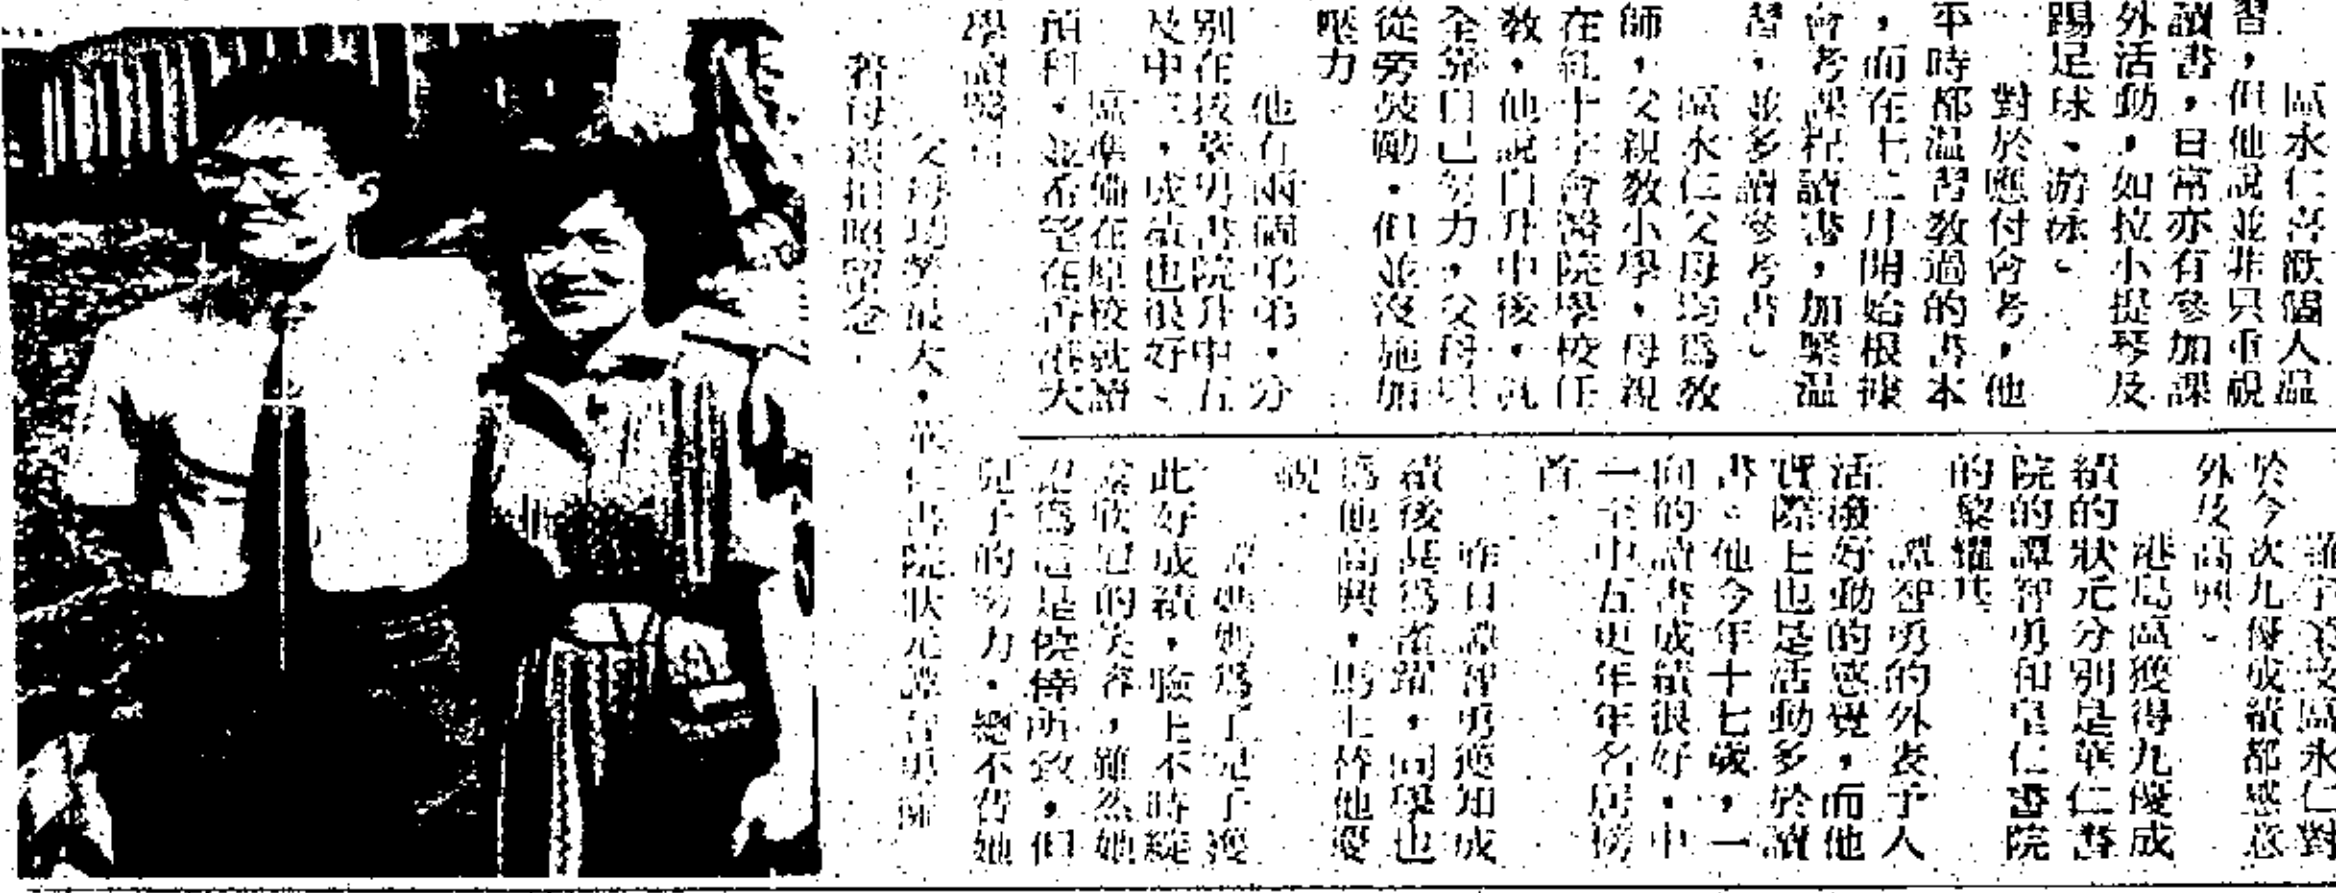 區永仁喜歡個人温
習，但他說並非只重視
讀書，日常亦有參加課
外活動，如拉小提琴及
踢足球、游泳。
對於應付會考，他
平時都温習敎過的書本
，而在十二月開始根據
會考課程讀書，加緊温
習，並多讀參考書。
區永仁父母均爲敎
師，父親敎小學，母親
在紅十字會醫院學校任
敎，他說自升中後，
全靠自己努力，父母只
從旁奬勵，但並沒施加
壓力
他有兩個弟弟，分
别在拔萃男書院升中五
及中三，成績也很好、
區準備在原校就讀
預科，並希望在香港大
學讀醫科
羅字
區永仁對
於今次九優成績都感意
外及高興。
港島區獲得九優成
績的狀元分別是華仁書
院的譚智勇和皇仁書院
的黎耀基
譚智勇的外表予人
活潑好動的感覺，而他
實際上也是活動多於讀
書。他今年十七歲，一
向的讀書成績很好，中
一至中五更年年名居榜
首，
昨日譚智勇獲知成
績後甚爲雀躍，同學也
爲他高興，馬上替他慶
祝，
譚媽媽爲了兒子獲
此好成績，臉上不時綻
欣慰的笑容，雖然她
認爲這是僥倖所致，但
兒子的努力，總不
她
父母功勞最大，華仁書院狀元譚智勇
母親拍照留念，